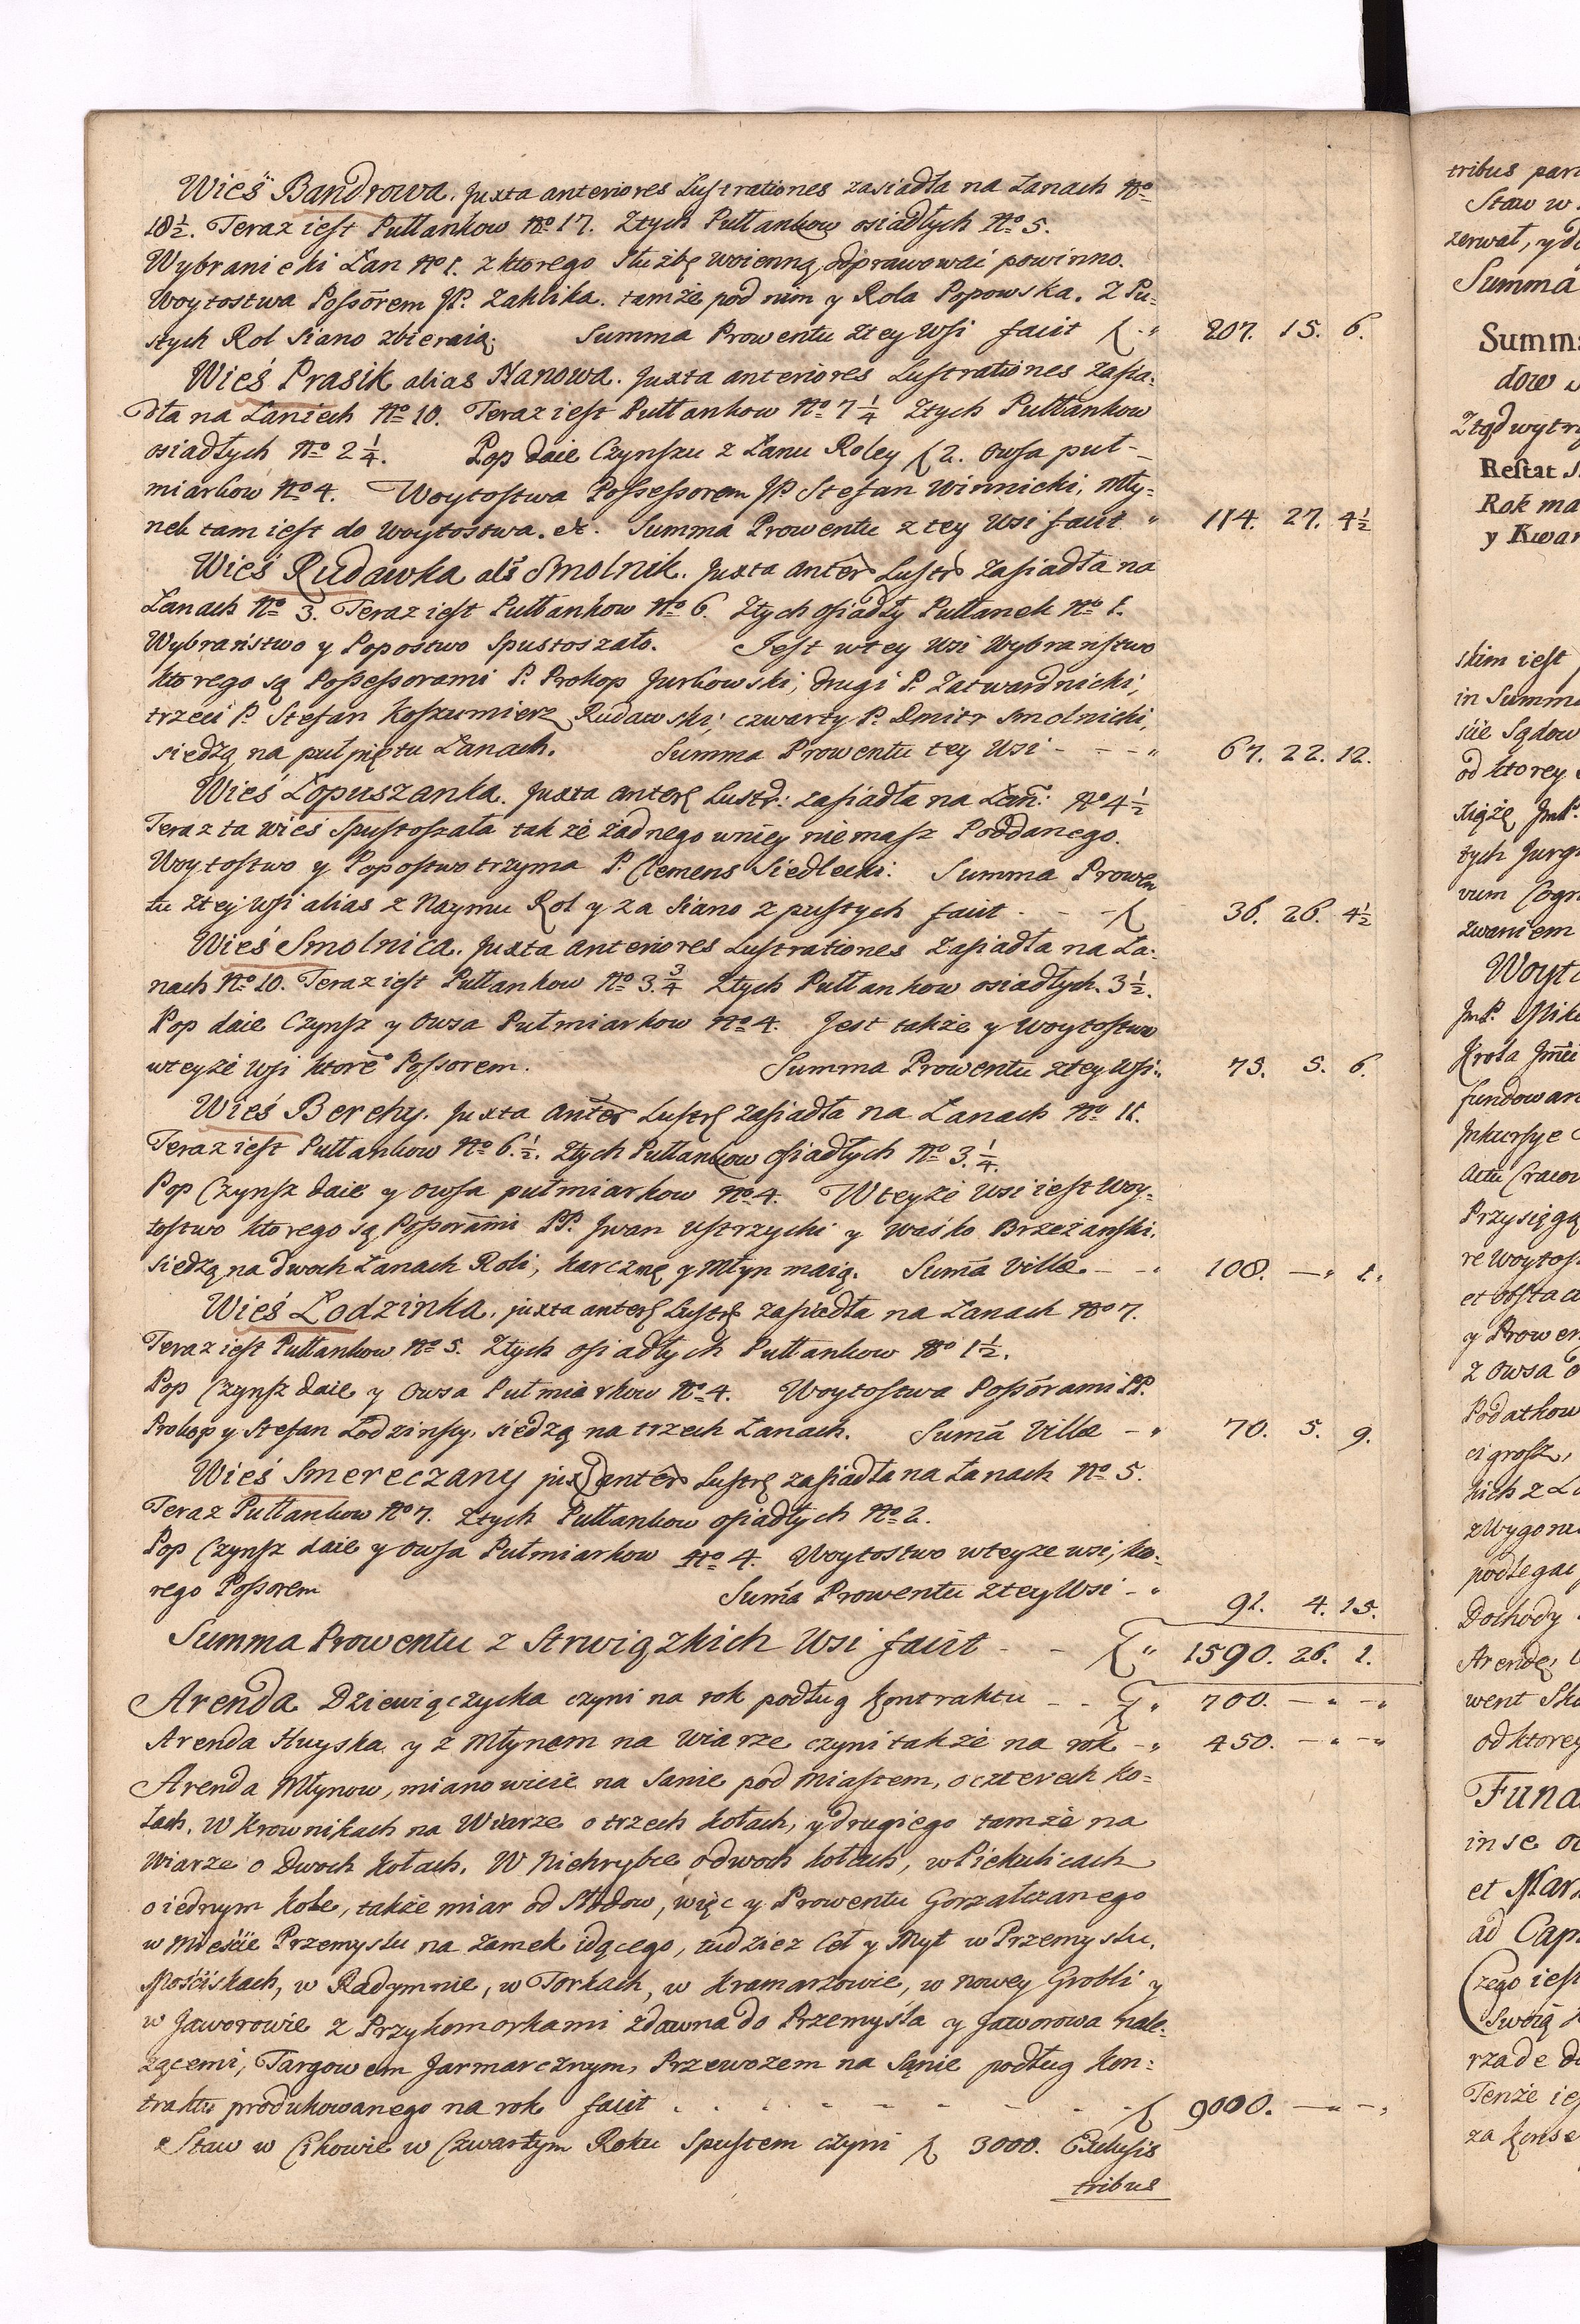 Wieś Bandrowa. Juxta anteriores Lustrationes zasiadła na Łanach No
18½. Teraz iest Pułłankow No 17. Ztych Pułłankow osiadłych No 5.
Wybraniecki Łan No 1. z ktorego słuzbę woienną odprawować powinno.
Woytostwa Possorem JP. Zaklika. tamże pod nim y Rola Popowska. Z Pu-
stych Rol siano zbieraią. Summa Prowentu ztey Wsi facit f. " 207. 15. 6.
Wieś Prasik alias Nanowa. Juxta anteriores Lustrationes Zasia-
dła na Łaniech No 10. Teraz iest Pułłankow No 7¼ Ztych Pułłankow
osiadłych No 2¼. Pop daie Czynszu z Łanu Roley f 2. Owsa puł-
miarkow No 4. Woytostwa Possessorem JP Stefan Winnicki, Mły-
nek tam iest do woytostwa. etc. Summa Prowentu z tey Wsi facit " 114. 27. 4½
Wieś Rudawka als Smolnik. Juxta anter Lustr Zasiadła na
Łanach No 3. Teraz iest Pułłankow No 6. Ztych osiadły Pułłanek No 1.
Wybraństwo y Popostwo Spustoszało. Jest wtey Wsi Wybraństwo
ktorego są Possessorami P. Prokop Jurkowski, drugi P. Zatwardnicki,
trzeci P. Stefan Koszumierz Rudawski, czwarty P. Dmitr Smolnicki,
siedzą na pułpiętu Łanach. Summa Prowentu tey Wsi - - - " 67. 22. 12.
Wieś Łopuszanka. Juxta anter Lustr: zasiadła na Łan: No 4½
Teraz ta wieś spustoszała tak że żadnego wniey niemasz Poddanego.
Woytostwo y Popostwo trzyma P. Clemens Siedlecki: Summa Prowen
tu ztey Wsi alias z Naymu Rol y za siano z pustych facit - - f 36. 26. 4½
Wieś Smolnica. Juxta anteriores Lustrationes Zasiadła na Ła-
nach No 10. Teraz iest Pułłankow No 3.¾ Ztych Pułłankow osiadłych. 3½.
Pop daie Czynsz y Owsa Pułmiarkow No 4. Jest także y Woytostwo
wteyże Wsi ktore Possorem. Summa Prowentu ztey Wsi " 73. 5. 6.
Wieś Berehy. Juxta anter Lustr zasiadła na Łanach No 11.
Teraz iest Pułłankow No 6.½. Ztych Pułłankow osiadłych No 3.¼.
Pop Czynsz daie y owsa pułmiarkow No 4. Wteyże Wsi iest Woy-
tostwo ktorego są Possorami PP. Jwan Ustrzycki y Waśko Brzeżanski.
siedzą na dwoch Łanach Roli, karczmę y Młyn maią. Suma Villæ - - " 108. — " 1 "
Wieś Łodzinka. juxta anter Lustr zasiadła na Łanach No 7.
Teraz iest Pułłankow No 5. Ztych osiadłych Pułłankow No 1½.
Pop Czynsz daie y Owsa Pułmiarkow No 4. Woytostwa Possorami PP.
Prokop y Stefan Łodzinscy, siedzą na trzech Łanach. Suma Villæ - " 70. 5. 9.
Wieś Smereczany jux anter Lustr zasiadła na Łanach No 5.
Teraz Pułłankow No 7. Ztych Pułłankow osiadłych No 2.
Pop Czynsz daie y Owsa Pułmiarkow No 4. Woytostwo wteyze wsi, kto-
rego Possorem Suma Prowentu ztey Wsi - " 91. 4. 15.
Summa Prowentu z Strwiązkich Wsi facit - - f " 1590. 26. 1.
Arenda Dziewięczycka czyni na rok podług kontraktu - - f " 700. — " — "
Arenda Huyska y z Młynem na Wiarze czyni także na rok - " 450. — " — "
Arenda Młynow, mianowicie na Sanie pod Miastem, o czterech ko-
łach, w Krownikach na Wiarze o trzech kołach, y drugiego tamże na
Wiarze o dwoch kołach, W Niehrybce o dwoch kołach, w Pikulicach
o iednym kole, także miar od Słodow, więc y Prowentu Gorzałczanego
w Mieście Przemyslu na zamek idącego, tudziez Ceł y Myt w Przemyslu,
Mościskach, w Radymnie, w Torkach, w Kramarzowie, w nowey Grobli y
w Jaworowie z Przykomorkami zdawna do Przemyśla y Jaworowa nale-
żącemi, Targowem Jarmarcznym, Przewozem na Sanie podług kon-
traktu produkowanego na rok facit - - - - - - f 9000. — " — "
Staw w Cikowie w Czwartym Roku Spustem czyni f 3000. Exclusis
tribus
tribus par
Staw w
zerwał, y d
Summa
Summ
dow
Ztąd wytr
Restat S
Rok ma
y Kwar
skim iest
in Summ
ście Sądow
od ktorey
siążę JmP.
tych Jurg
rum Cogn
zwaniem
Woyt
JmP. Mik
Krola Jmci
fundowan
Inkursye
Actu Craco
Przysięgą
re Woytos
et obsta
y Prowen
z Owsa
Podatkow
ci grosz,
kich z
z Wygon
podlega
Dochody
Arendę
went Sk
od ktorey
Fund
in se
et Mar
ad Cap
Czego iest
Swoią
rza de
Tenże ies
za konse